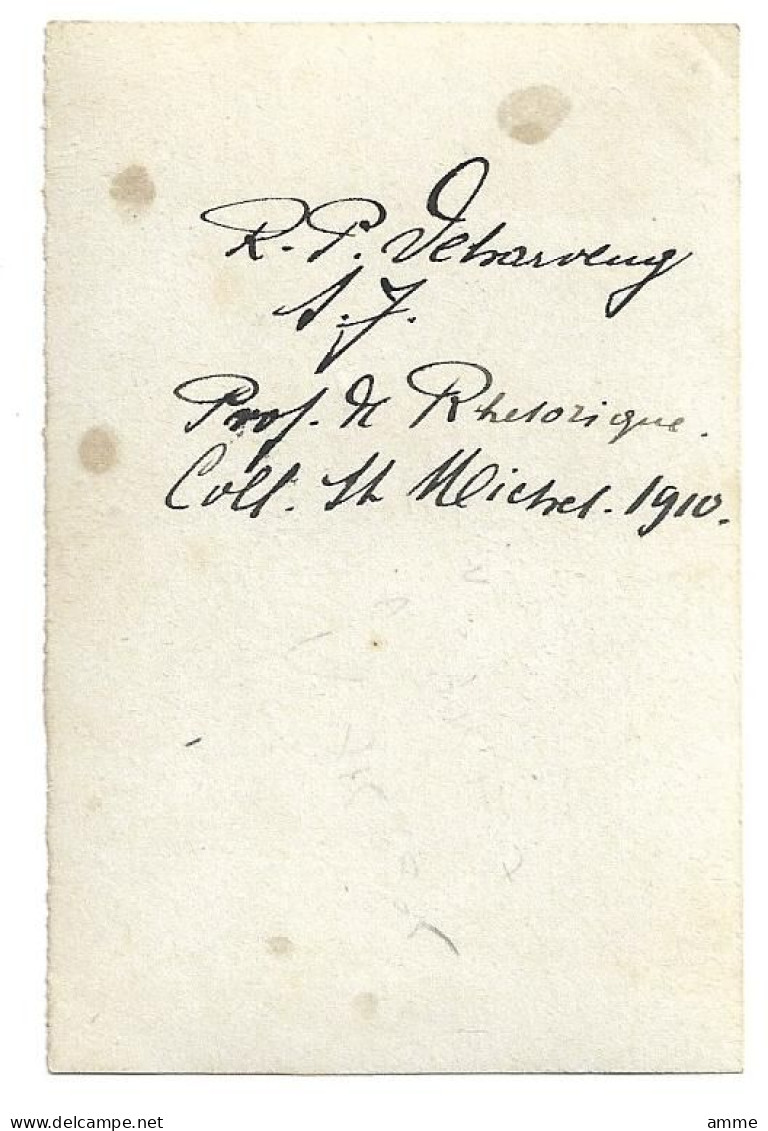 R. P. Deharveng
S. J.
Prof. de Rhetorique.
Coll. St Michel. 1910.
delcampe.net
amme